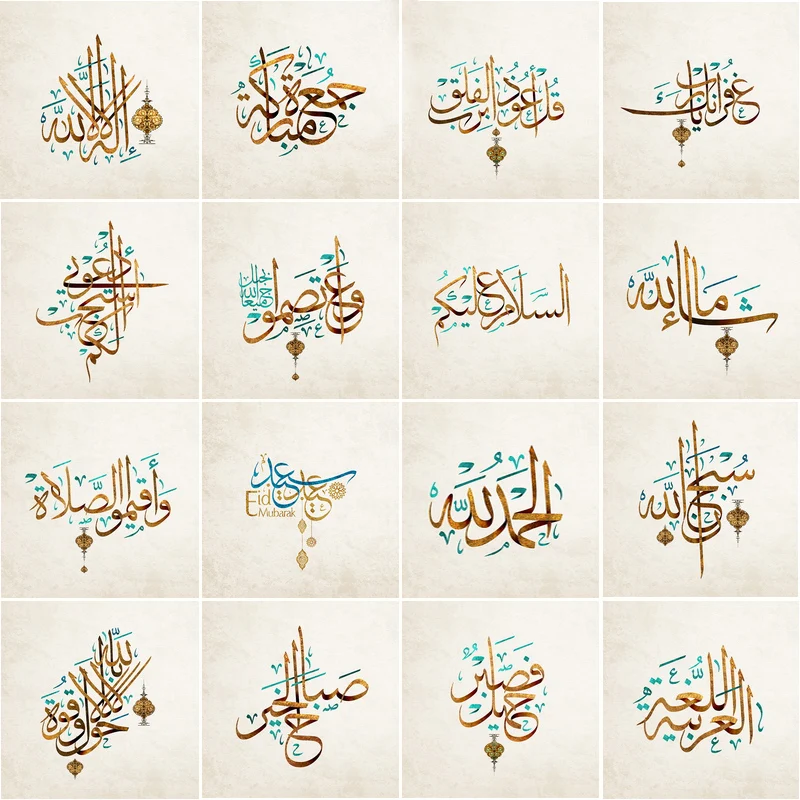 لا إله إلا الله
جمعة مباركة
قل أعوذ برب الفلق
غفرانك ربنا
أدعوني
أستجب
لكم
واعتصموا بحبل الله جميعا
السلام عليكم
ما شاء الله
وأقيموا الصلاة
عيد سعيد
Eid
Mubarak
الحمد لله
سبحان الله
لا حول ولا قوة إلا بالله
صباح الخير
فصبر
جميل
اللغة
العربية